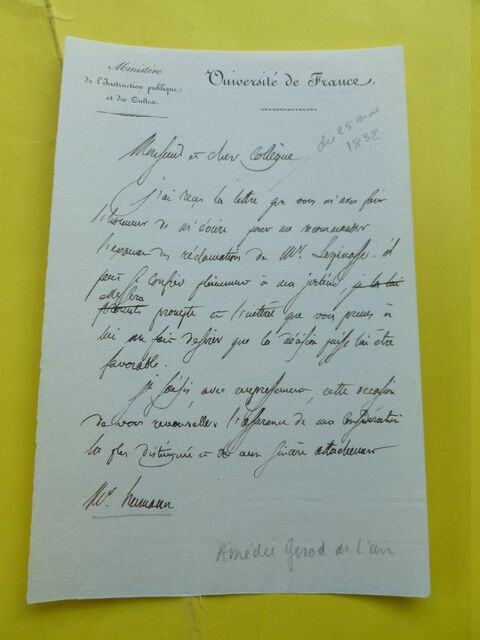 Ministère
de l'Instruction publique
et des Cultes.
Université de France.
du 25 mai
1832
Monsieur et cher Collègue
J'ai reçu la lettre que vous m'avez fait
l'honneur de m'écrire pour me recommander
l'examen des réclamations de Mr. Lespinasse. il
peut se confier pleinement à ma justice, je la lui
promets prompte et l'intérêt que vous prenez à
lui me fait désirer que la décision puisse lui être
favorable.
Je saisis, avec empressement, cette occasion
de vous renouveller l'assurance de ma considération
la plus distinguée et de mon sincère attachement
Mr. hermann
Amédée Girod de l'ain